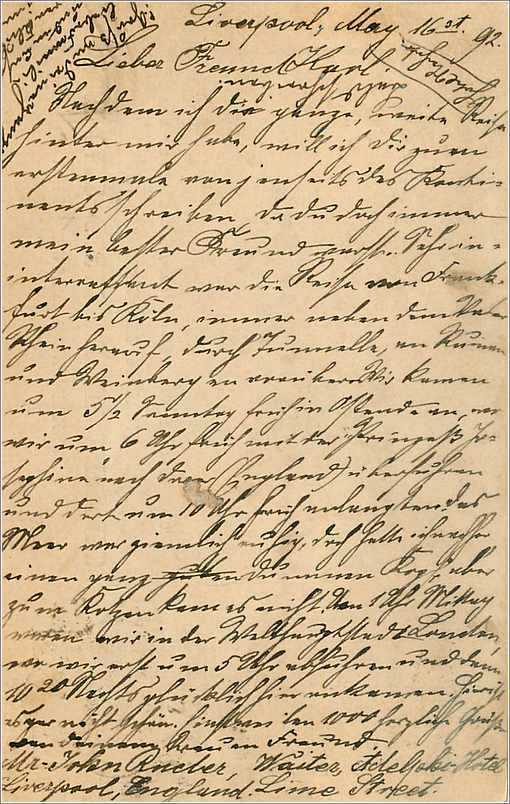 Liverpool, May 16st. 92.
Lieber Freund Karl!
Nachdem ich die ganze, weite Reise
hinter mir habe, will ich Dir zum
erstenmale von jenseits des Konti-
nents schreiben, da du doch immer
mein bester Freund warst. Sehr in-
interessant war die Reise von Frank-
furt bis Köln, immer neben dem Vater
Rhein herauf, durch Tunnelle, an Ruinen
und Weinbergen vorüber. Wir kamen
um 5 1/2 Sonntag früh in Ostende an, wo
wir um 6 Uhr früh mit der Prinzeß Jo-
sephine nach Dover (England) überfuhren
und dort um 10 Uhr früh anlangten. Das
Meer war ziemlich ruhig, doch hatte ich nachher
einen ganz dummen Kopf, aber
zum Kotzen kam es nicht. Um 1 Uhr Mittag
waren wir in der Welthauptstadt London,
wo wir erst um 5 Uhr abfuhren und dann
10 20 Nachts glücklich hier ankamen. Hier ist
es gar nicht schön. 1000 herzliche Grüße
von Deinem treuen Freund
Mr. John Waiter, Adelphi-Hotel
Liverpool, England. Lime Street.